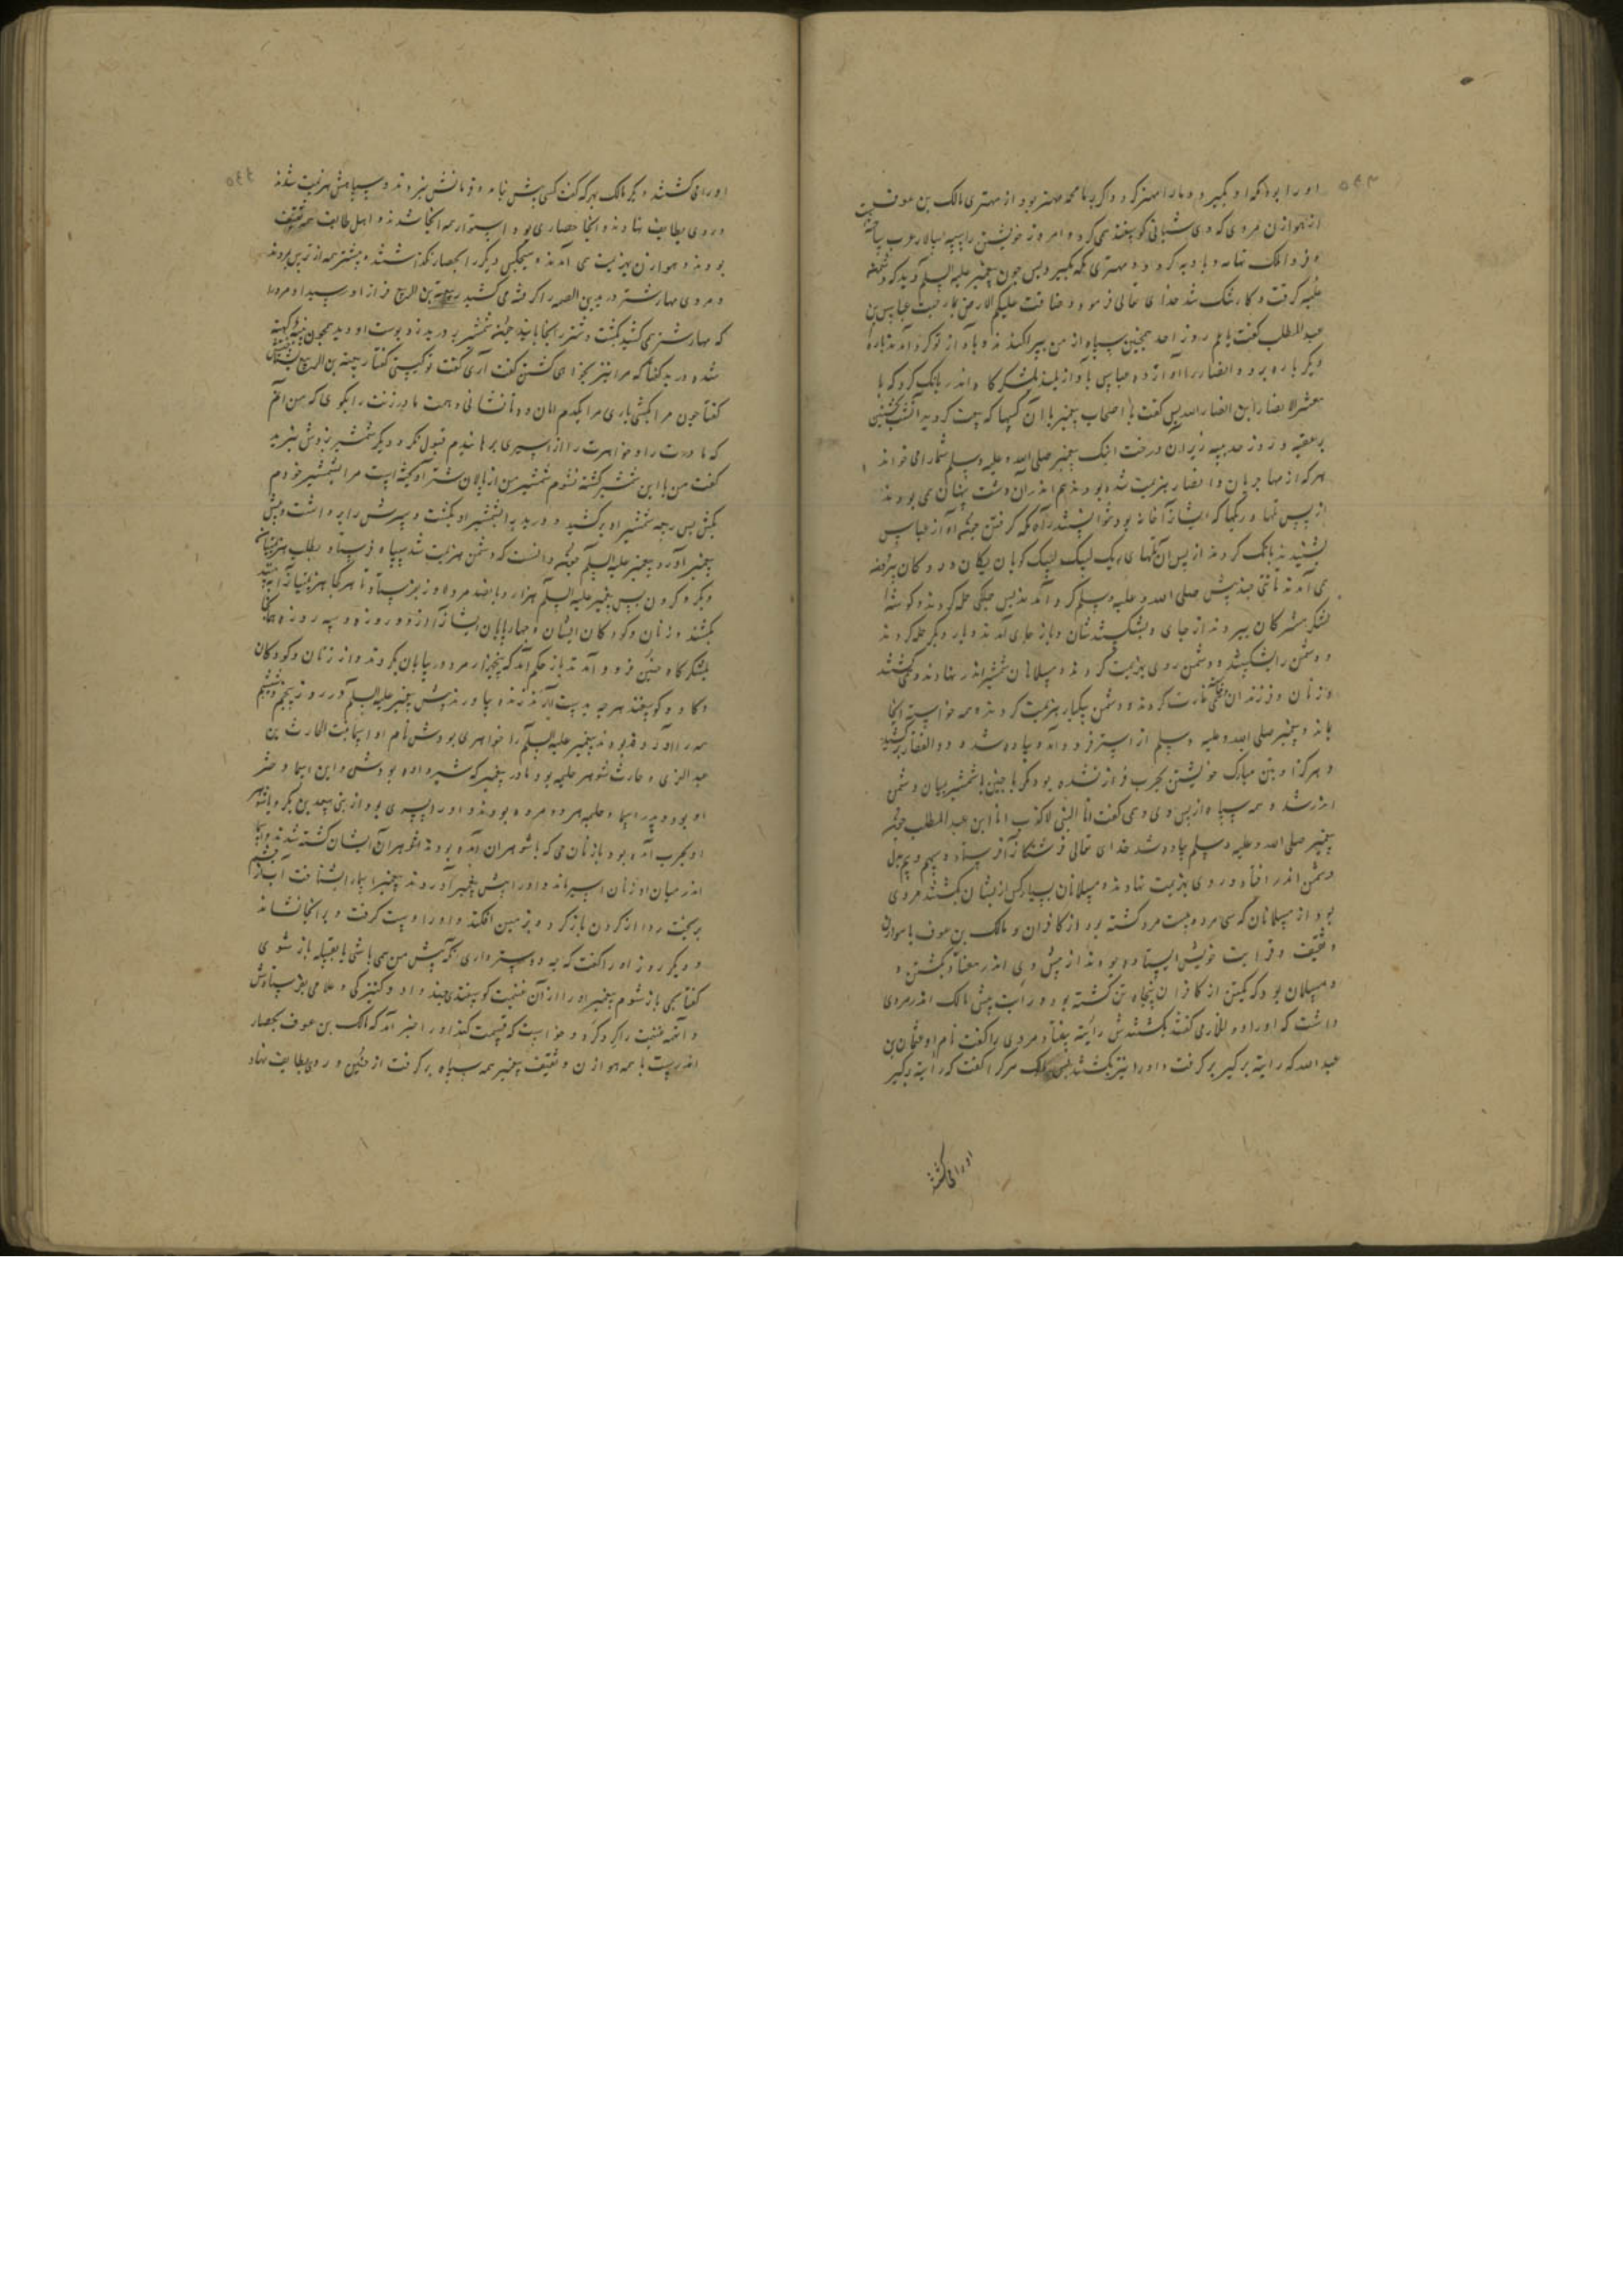 او را بود اکر او بکیرد و مارا مهتر کردد اکر با محمد مهتر بود از مهتری مالک بن عوف
از هوازن مردی که وی شبانی کوسپند می کرد و امروز خویشتن را سپه سالار عرب
فردا ملک تهامه و بادیه کردد و مهتری مکه بکیرد پس چون پیغمبر علیه السلم دید که
غلبه کرفت و کار تنک شد خدای تعالی فرمود و ضاقت علیکم الارض بما رحبت عباس بن
عبد المطلب کفت یا عم روز احد همچنین سپاه از من بپراکند ند و باواز تو کرد آمدند
دیکر باره برو و انصار را آواز ده عباس باواز بلند بلشکرکاه اندر بانک کرد که یا
معشر الانصار این انصار الله پس کفت یا اصحاب پیغمبر یا آن کسها که بیعت کردید
بر عقبه و روز حدیبیه زیر آن درخت اینک پیغمبر صلی الله و علیه وسلم شما را می خواند
هر که از مهاجریان و انصار هزیمت شده بودند هم اندر آن دشت پنهان می بودند
از پس تلها و ریکها که ایشانرا خانه بود نتوانستند راه مکه کرفتن چون آواز عباس
بشنیدند بانک کردند از پس آن تلهای ریک لبیک لبیک کویان یکان و دوکان
می آمدند تا تنی چند پیش صلی الله و علیه وسلم کرد آمدند پس جملکی حمله کردند و کوشه
لشکر مشرکان ببردند از جای و بشکستندشان و باز جای آمدند و بار دیکر حمله کردند
و دشمن را بشکستند و دشمن روی بهزیمت کردند و مسلمانان شمشیر اندر نهادند و می کشتند
و زنان و فرزندان غارت کردند و دشمن یکبار هزیمت کردند و همه خواسته آنجا
بماند و پیغمبر صلی الله و علیه وسلم از استر فرود آمد و پیاده شد و ذوالفقار برکشید
و هرکز او بتن مبارک خویشتن بحرب فراز نشده بود مکر با حنین با شمشیر میان دشمن
اندر شد و همه سپاه از پس وی و می کفت انا النبی لا کذب انا ابن عبد المطلب چون
پیغمبر صلی الله و علیه وسلم پیاده شد خدای تعالی فرشتکانرا فرستاد و بیم و هول
دشمن اندر افتاد و روی بهزیمت نهادند و مسلمانان بسیار کس از یشان بکشتند مردی
بود از مسلمانان که سی مرد و بیست مرد کشته بود از کافران و مالک بن عوف با هوازن
و ثقیف و قرابت خویش ایستاده بودند از پیش وی اندر هفتاد بکشتن و
و مسلمان بود که یکتن از کافران پنجاه تن کشته بود و رایت پیش مالک اندر مردی
داشت که او را ذو الخمار می کفتند بکشتندش رایته بیفتاد مردی را کفت نام او عثمان بن
عبد الله که رایته بر کیر بر کرفت و او را نیز بکشتند پس مالک هر کرا کفت که رایته برکیر
اورا می کشتند
اورا می کشتند دیکر مالک بهر که کفت کسی پیش نیامد و فرمانش نبردند و سپاهش هزیمت شدند
و روی بطایف نهادند و آنجا حصاری بود استوار همه آنجا شدند و اهل طایف همه ثقیف
بودند و هوازن بهزیمت می آمدند و هیچکس دیکر را بحصار نکذاشتند و بیشتر همه از ترس بمردند
و مردی مهار شتر درید بن الصمه را کرفته می کشید ربیعة بن الربیع فراز او رسید او مردمرا
که مهار شتر می کشید بکشت و شتر را بخابانید چون شمشیر بر درید زد پوست او دید همچون
شده درید کفتا که مرا نیز بخواهی کشتن کفت آری کفت تو کیستی کفتا ربیعة بن الربیع
کفتا چون مرا بکشی باری مرا یکدم امان ده تا نشانی دهمت مادر و زنت را بکوی که من آنم
که مادرت را و خواهرت را از اسیری برهانیدم قبول نکرد و دیکر شمشیر بزدش نبرید
کفت من با این شمشیر کشته نشوم شمشیر من از پالان شتر آویخته است مرا بشمشیر خودم
بکش پس ربیعه شمشیر او برکشید و درید را بشمشیر او بکشت و سرش را برداشت و پیش
پیغمبر آورد پیغمبر علیه السلم چون دانست که دشمن هزیمت شد سپاه فرستاد بطلب
و کرد کردن پس پیغمبر علیه السلم هزار و پانصد مرد از بر فرستاد تا هر کجا هزیمتیانرا
بکشند و زنان و کودکان ایشان و چهارپایان ایشانرا و دو روز و سه روز
بلشکرکاه حنین فرود آمدند باز حکم آمد که پنجهزار مرد در بیابان بکردند و از زنان و کودکان
و کاو و کوسپند هرچه بدست آید زنده بیاورند پیش پیغمبر علیه السلم در روز پنجم
همه را آورده بودند پیغمبر علیه السلم را خواهری بودش نام او اسما بنت الحارث بن
عبد العزی و حارث شوهر حلیمه بود مادر پیغمبر که شیر داده بودش و این اسما دختر
او بود و پدر اسما و حلیمه هر دو مرده بودند و او را پسری بود از بنی سعد بن بکر
او بحرب آمده بود با زنان می که با شوهران آمده بودند شوهران ایشان کشته شدند
اندر میان او زنان اسیر ماند و او را پیش پیغمبر آوردند پیغمبر اسما را بشناخت
برجست ردا از کردن باز کرد و بر زمین افکند و او را دست کرفت و بر آنجا نشاند
و دیکر روز او را کفت که چه دوستر داری که پیش من می باشی یا بقبیله باز شوی
کفتا بحی باز شوم پیغمبر او را از آن غنیمت کوسپندی چند داد و کنیزکی و غلامی
و آنهمه غنیمت را کرد کرد و خواست که قسمت کند او را خبر آمد که مالک بن عوف بحصار
اندرست با همه هوازن و ثقیف پیغمبر همه سپاه بر کرفت از حنین و روی بطایف نهاد